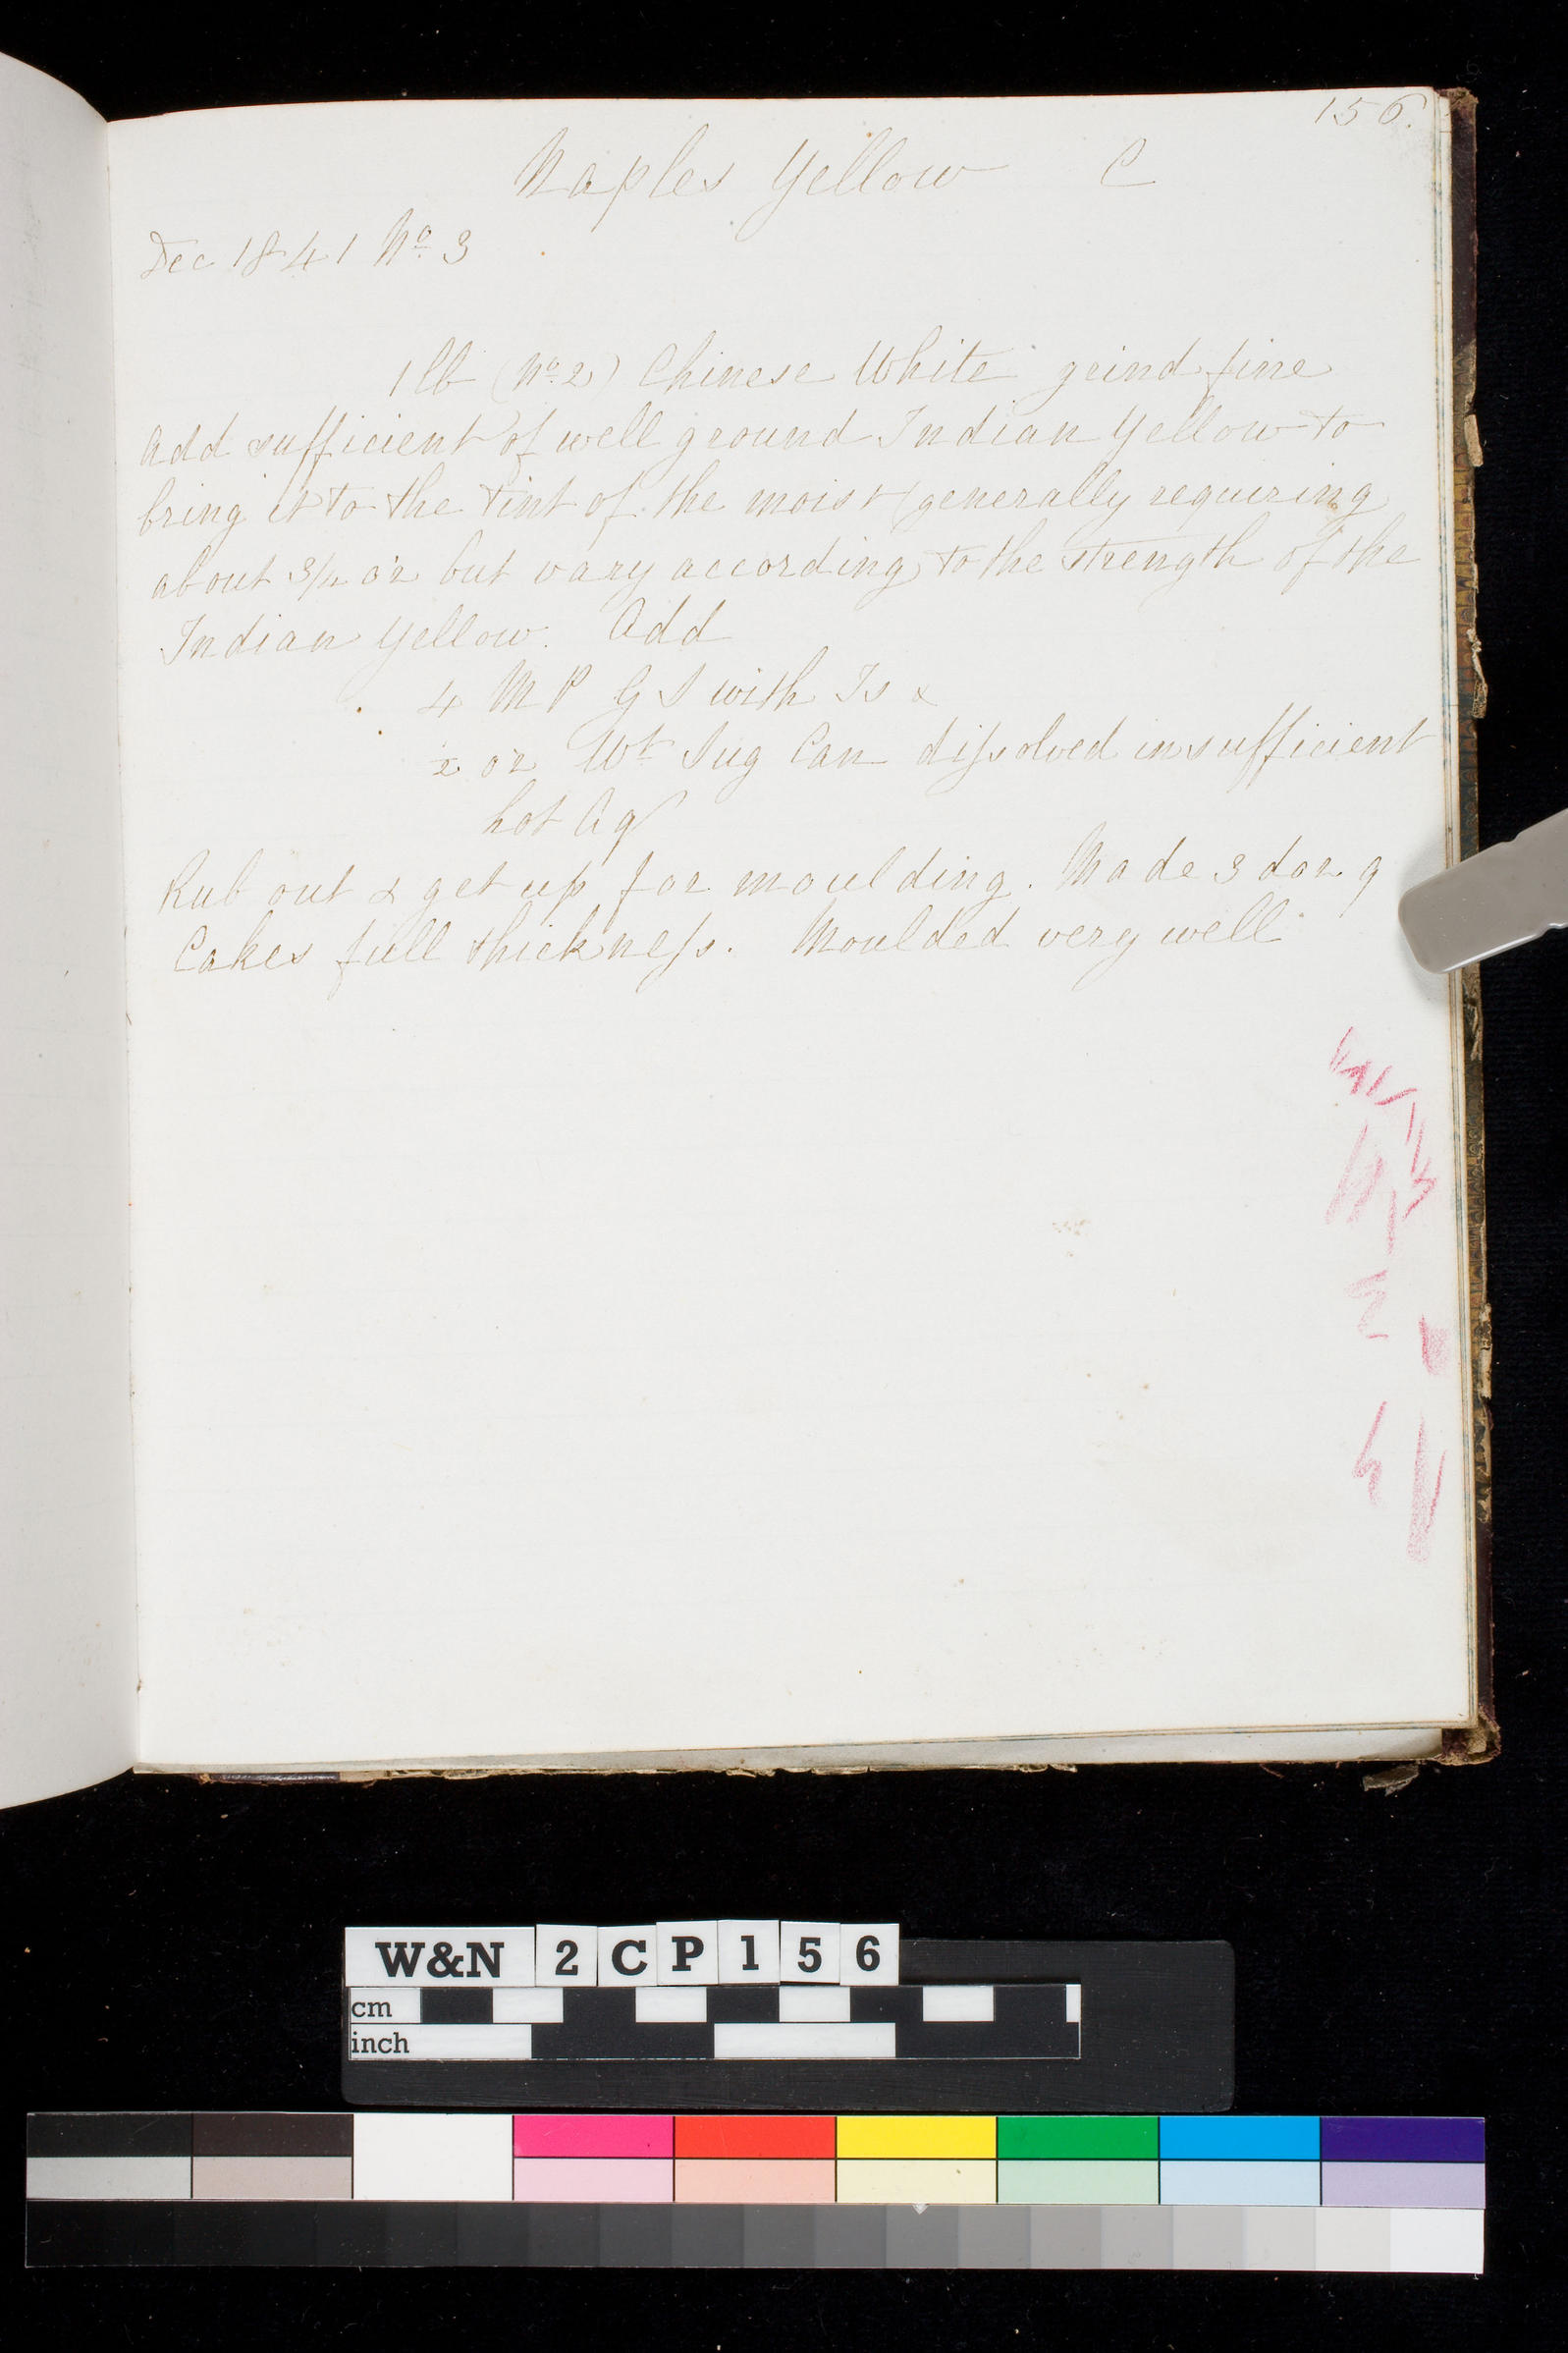 156.
Naples Yellow C
Dec 1841 No 3
1 lb (No 2) Chinese White grind fine
Add sufficient of well ground Indian Yellow to
bring it to the tint of the moist (generally requiring
about 3/4 oz but vary according to the strength of the
Indian Yellow. Add
4 M P G S with Is &
1/2 oz Wt Sug Can dissolved in sufficient
hot Aq
Rub out & get up for moulding. Made 3 doz 9
Cakes full thickness. Moulded very well
W&N 2CP156
cm
inch